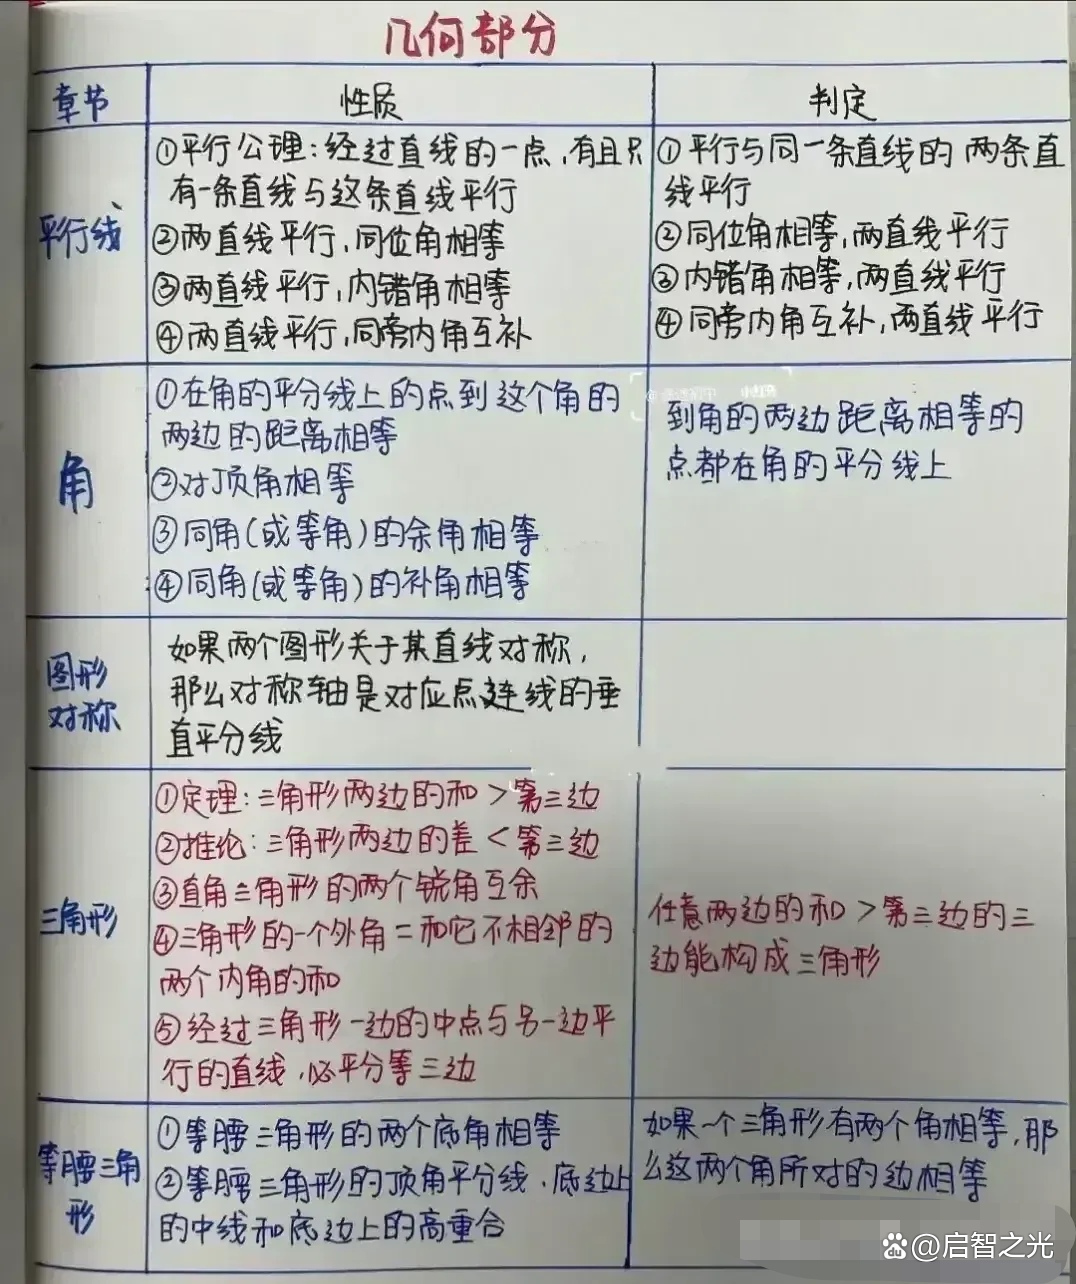 几何部分
章节
性质
判定
平行线
①平行公理:经过直线的一点,有且只
有一条直线与这条直线平行
②两直线平行,同位角相等
③两直线平行,内错角相等
④两直线平行,同旁内角互补
①平行与同一条直线的两条直
线平行
②同位角相等,两直线平行
③内错角相等,两直线平行
④同旁内角互补,两直线平行
角
①在角的平分线上的点到这个角的
两边的距离相等
②对顶角相等
③同角(或等角)的余角相等
④同角(或等角)的补角相等
到角的两边距离相等的
点都在角的平分线上
图形
对称
如果两个图形关于某直线对称,
那么对称轴是对应点连线的垂
直平分线
三角形
①定理:三角形两边的和>第三边
②推论:三角形两边的差<第三边
③直角三角形的两个锐角互余
④三角形的一个外角=和它不相邻的
两个内角的和
⑤经过三角形一边的中点与另一边平
行的直线,必平分第三边
任意两边的和>第三边的三
边能构成三角形
等腰三角
形
①等腰三角形的两个底角相等
②等腰三角形的顶角平分线.底边上
的中线和底边上的高重合
如果一个三角形有两个角相等,那
么这两个角所对的边相等
@启智之光